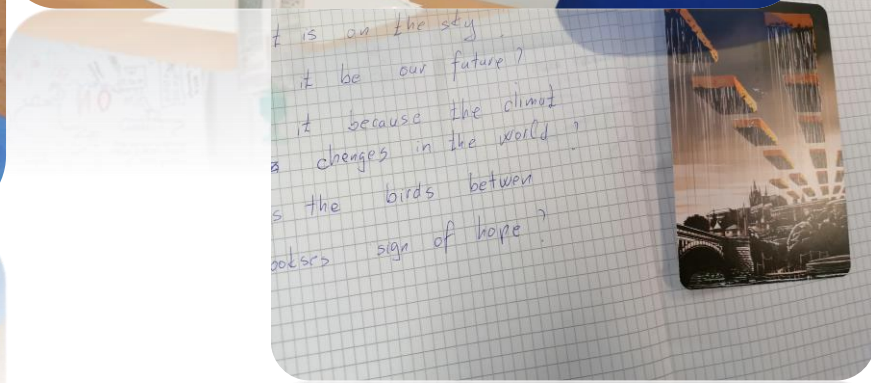 t is on the sky
it be our future?
it because the climat
s changes in the world?
s the birds betwen
ookses sign of hope?